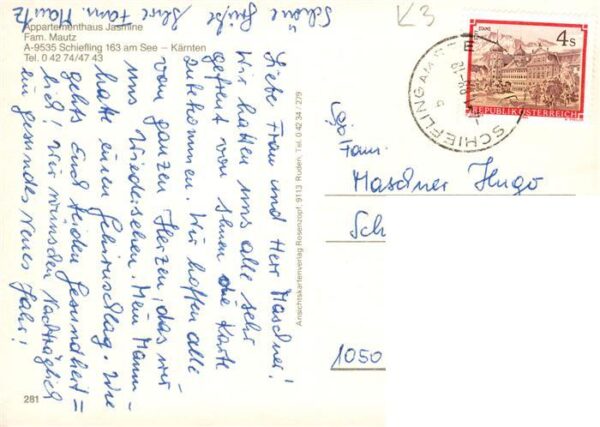 Appartementhaus Jasmine
Fam. Mautz
A-9535 Schiefling 163 am See – Kärnten
Tel. 0 42 74/47 43
Liebe Frau und Herr Maschner!
Wir hatten uns alle sehr
gefreut von Ihnen die Karte
zu bekommen. Wir hoffen alle
vom ganzen Herzen, das wir
uns Wiedersehen. Mein Mann
hatte einen Gehirnschlag. Wie
gehts Euch beiden Gesundheit=
lich? Wir wünschen Nachträglich
ein gesundes Neues Jahr!
Schöne Grüße
Ihre Fam. Mautz
281
Ansichtskartenverlag Rosenzopf, 9113 Ruden, Tel. 0 42 34 / 279
K3
4 S
REPUBLIK ÖSTERREICH
SCHIEFLING AM SEE
Fam.
Maschner Hugo
Sch
1050